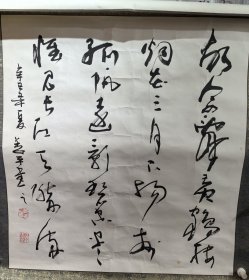 故人西辞黄鹤楼
烟花三月下扬州
孤帆远影碧空尽
惟见长江天际流
辛丑夏